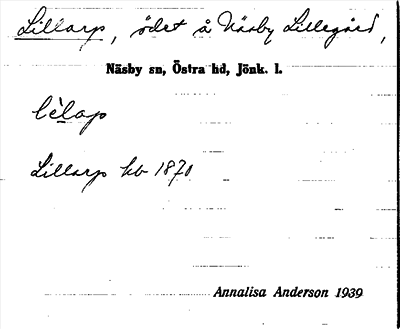 Lillarp, ödet å Näsby Lillegård,
Näsby sn, Östra hd, Jönk. l.
lèlap
Lillarp hb 1870
Annalisa Anderson 1939